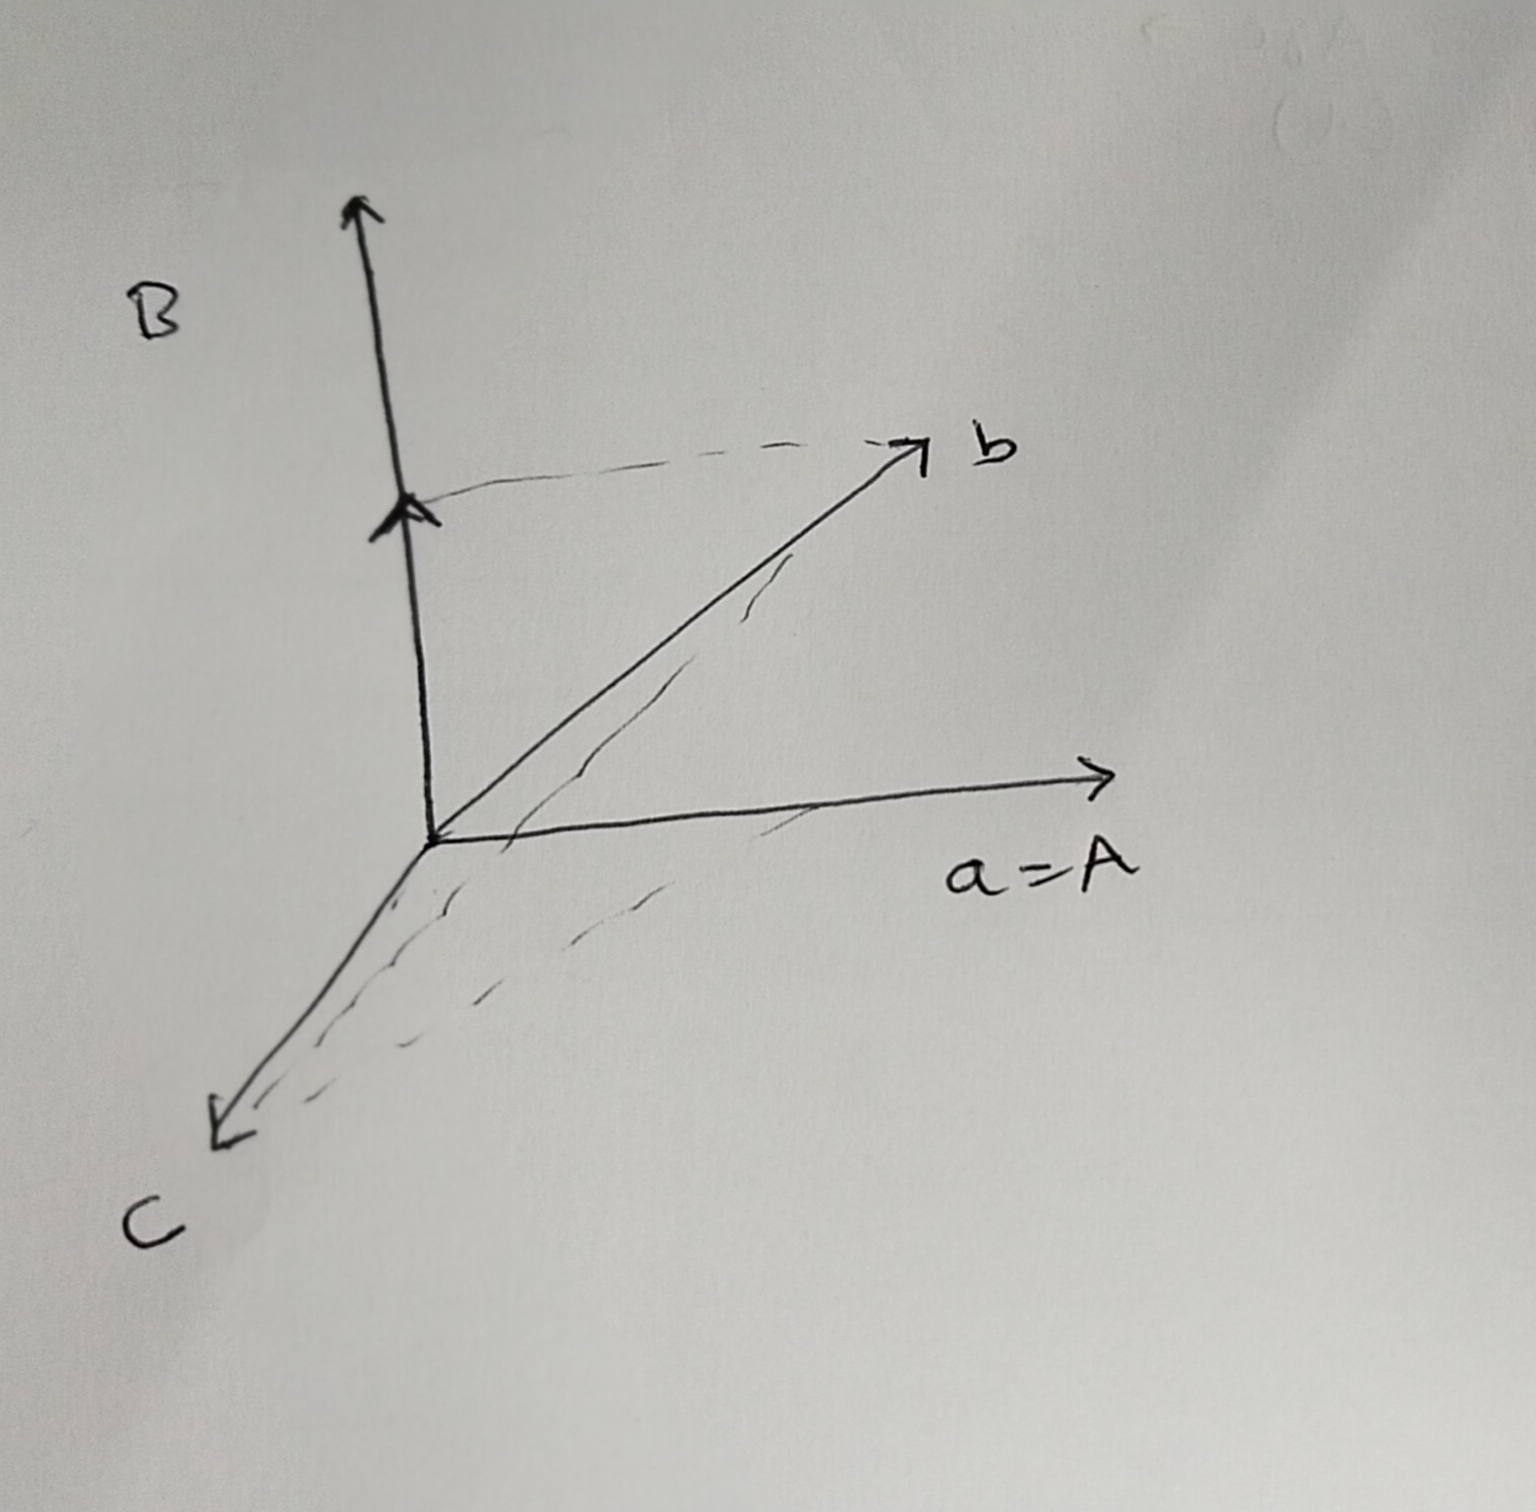 B
b
a = A
C